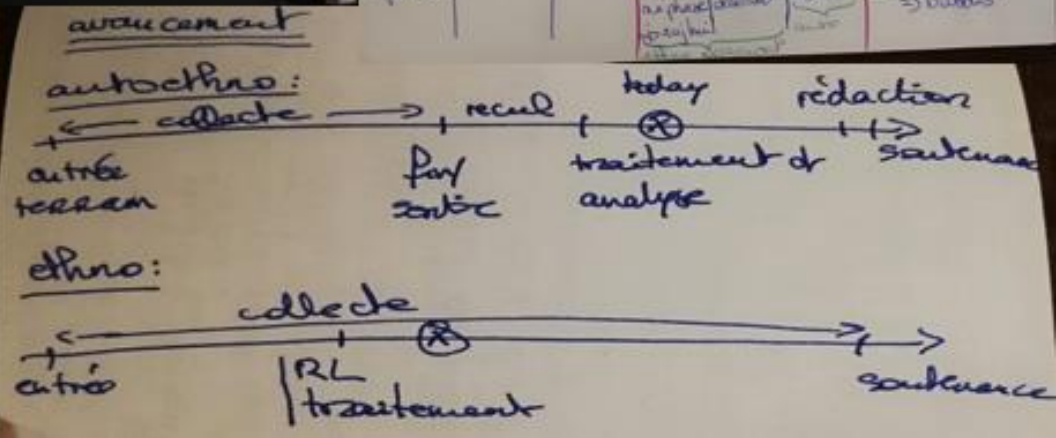 avancement
autoethno:
collecte recul today rédaction
entrée
terrain
sortie
traitement &
analyse
soutenance
ethno:
collecte
entrée
RL
traitement
soutenance